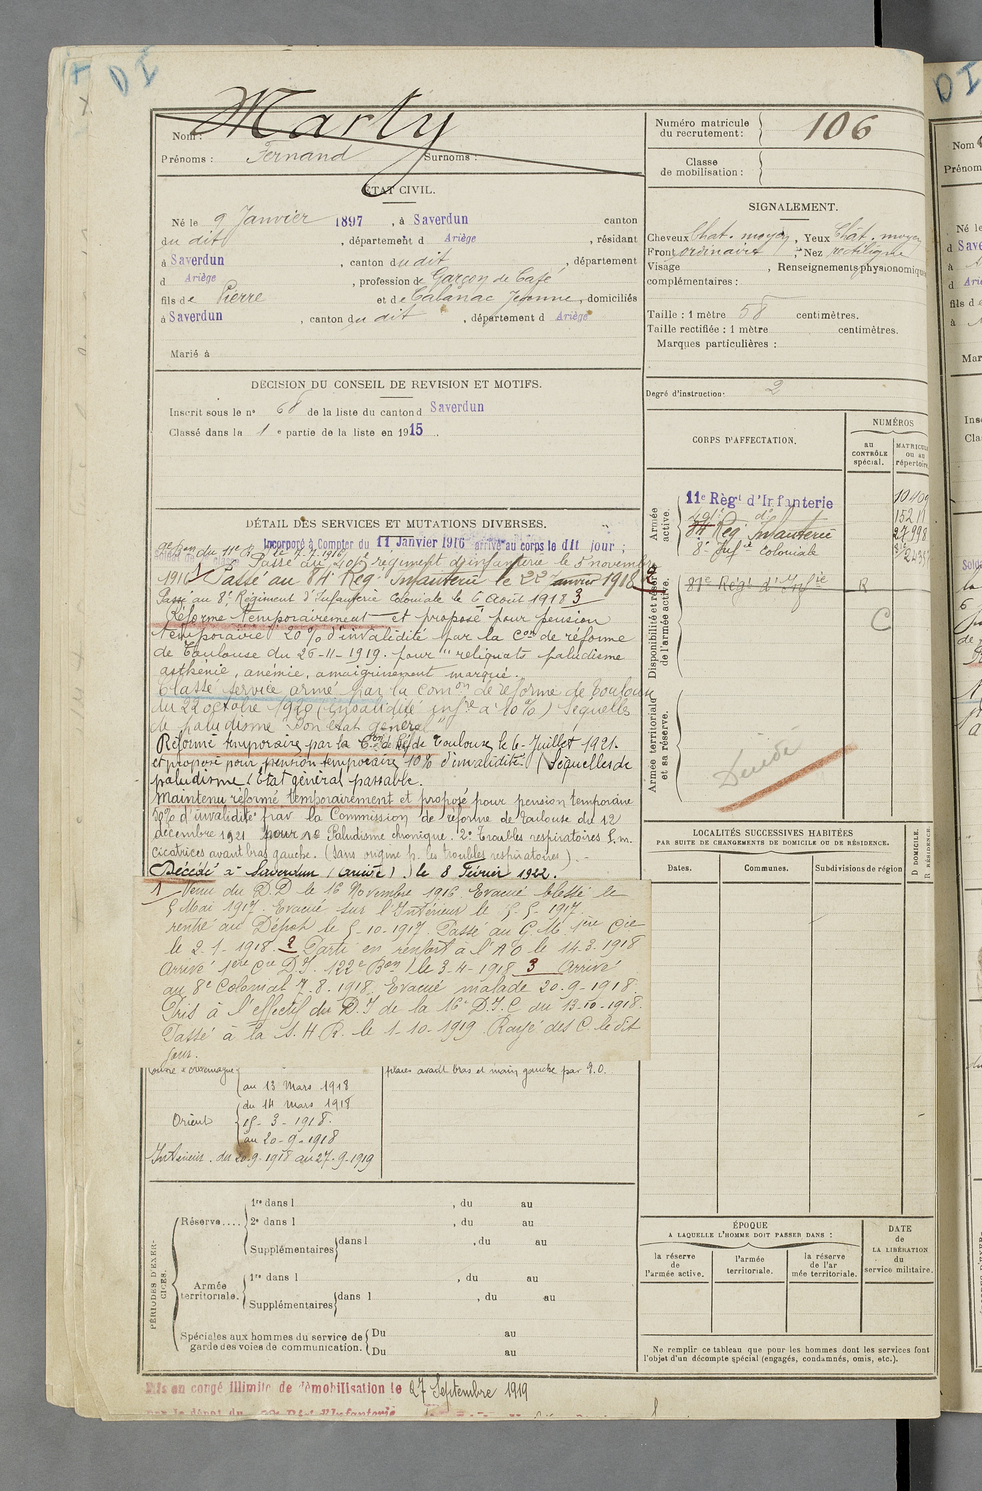 DI
Nom : Marty
Prénoms : Fernand Surnoms :
ÉTAT CIVIL.
Né le 9 Janvier 1897, à Saverdun canton
du dit, département d Ariège, résidant
à Saverdun, canton du dit, département
d Ariège, profession de Garçon de Café
fils de Pierre et de Cabanac Jeanne, domiciliés
à Saverdun, canton du dit, département d Ariège
Marié à
DÉCISION DU CONSEIL DE REVISION ET MOTIFS.
Inscrit sous le n° 68 de la liste du canton d Saverdun
Classé dans la 1 e partie de la liste en 1915.
DÉTAIL DES SERVICES ET MUTATIONS DIVERSES.
Incorporé à Compter du 11 Janvier 1916 arrivé au corps le dit jour ;
du 11e le 7-7-1916 Passé au 40e régiment d'infanterie le 5 novembre
1916 1 Passé au 84 Rég. Infanterie le 22 Janvier 1918 2
Passé au 8e Régiment d'Infanterie Coloniale le 6 Août 1918 3
Réformé temporairement et proposé pour pension
temporaire 20 % d'invalidité par la Con de réforme
de Toulouse du 26-11-1919. pour "reliquats paludisme
asthénie, anémie, amaigrissement marqué.
Classé service armé par la Comon de réforme de Toulouse
du 22 octobre 1920 (Invalidité infre à 10 %) Séquelles
de paludisme "Bon état général"
Réformé temporaire par la Con de Réf de Toulouse le 6 Juillet 1921.
et proposé pour pension temporaire 10% d'invalidité. (Séquelles de
paludisme. Etat général passable.
Maintenu réformé temporairement et proposé pour pension temporaire
d'invalidité par la Commission de réforme de Toulouse du 12
décembre 1921 pour 1° Paludisme chronique. 2° Troubles respiratoires S.m.
Cicatrices avant bras gauche. (Sans origine p. les troubles respiratoires). -
Décédé à Saverdun (Ariège) le 8 Février 1922.
1 Venu du D.D le 16 Novembre 1916 Evacué blessé le
5 Mai 1917 Evacué sur l'Intérieur le 5-5-1917.
rentré au Dépot le 5-10-1917. Passé au C.M. 1ère Cie
le 2-1-1918. 2 Parti en renfort à l'AO le 14-3-1918
Arrivé 1ère Cie D.I. 122e Bon le 3-4-1918 3 Arrivé
au 8e Colonial 7-8-1918. Evacué malade 20-9-1918.
Pris à l'effectif du D.I de la 16e D.I.C du 13-10-1918.
Passé à la S.H.R. le 1-10-1919 Rayé des C le dit
jour.
au 13 Mars 1918
plaies avant bras et main gauche par E.O.
Orient
du 14 Mars 1918
15-3-1918.
au 20-9-1918
Intérieur. du 20.9.1918 au 27.9.1919
PÉRIODES D'EXERCICES.
Réserve....
1re dans l , du au
2e dans l , du au
Supplémentaires dans l , du au
Armée territoriale.
1re dans l , du au
Supplémentaires dans l , du au
Spéciales aux hommes du service de garde des voies de communication.
Du au
Du au
Mis en congé illimité de démobilisation le 27 Septembre 1919
par le dépôt du Régt d'Infanterie
Numéro matricule du recrutement : 106
Classe de mobilisation :
SIGNALEMENT.
Cheveux Chat. moyen, Yeux Chat. moyen
Front ordinaire, Nez rectiligne
Visage , Renseignements physionomiques
complémentaires :
Taille : 1 mètre 58 centimètres.
Taille rectifiée : 1 mètre centimètres.
Marques particulières :
Degré d'instruction : 2
CORPS D'AFFECTATION.
NUMÉROS
au CONTRÔLE spécial.
MATRICULE ou au répertoire
Armée active.
11e Régt d'Infanterie 10409
40e do 15211
84 Rég Infanterie 27998
8e Infie Coloniale
Disponibilité et réserve de l'armée active.
81e Régt d'Infie R
C
Armée territoriale et sa réserve.
Décédé
LOCALITÉS SUCCESSIVES HABITÉES
PAR SUITE DE CHANGEMENTS DE DOMICILE OU DE RÉSIDENCE.
Dates. Communes. Subdivisions de région
D DOMICILE. R RÉSIDENCE.
ÉPOQUE
A LAQUELLE L'HOMME DOIT PASSER DANS :
la réserve de l'armée active.
l'armée territoriale.
la réserve de l'armée territoriale.
DATE de LA LIBÉRATION du service militaire.
Ne remplir ce tableau que pour les hommes dont les services font
l'objet d'un décompte spécial (engagés, condamnés, omis, etc.).
DI